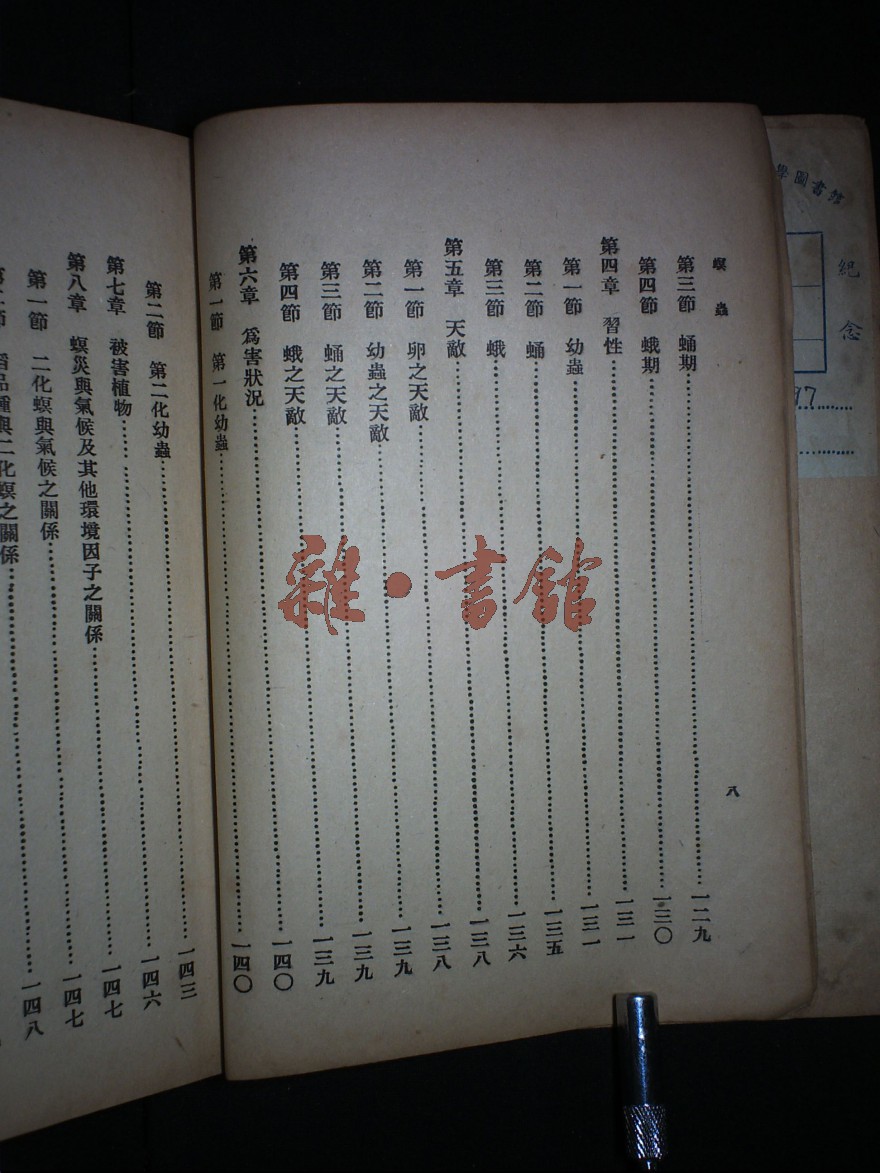 螟蟲
八
第三節 蛹期……一二九
第四節 蛾期……一三〇
第四章 習性……一三一
第一節 幼蟲……一三一
第二節 蛹……一三五
第三節 蛾……一三六
第五章 天敵……一三八
第一節 卵之天敵……一三八
第二節 幼蟲之天敵……一三九
第三節 蛹之天敵……一三九
第四節 蛾之天敵……一三九
第六章 爲害狀況……一四〇
第一節 第一化幼蟲……一四〇
第二節 第二化幼蟲……一四三
第七章 被害植物……一四六
第八章 螟災與氣候及其他環境因子之關係……一四七
第一節 二化螟與氣候之關係……一四七
品種與二化螟之關係……一四八
學圖書館
紀念
97
雜·書館